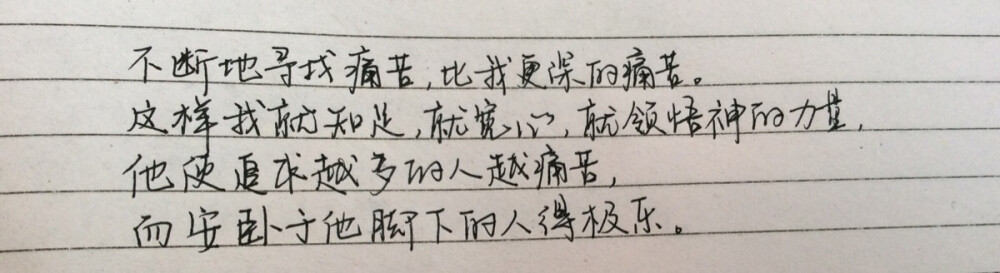 不断地寻找痛苦,比我更深的痛苦。
这样我就知足,就宽心,就领悟神的力量,
他使追求越多的人越痛苦,
而安卧于他脚下的人得极乐。